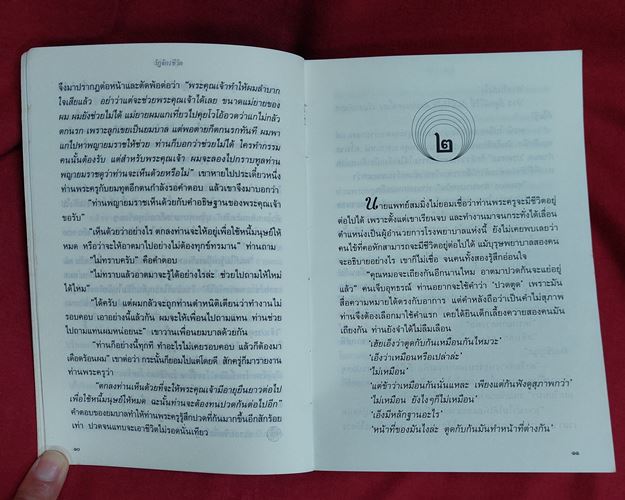 วัฏจักรชีวิต
จึงมาปรากฏต่อหน้าและตัดพ้อต่อว่า "พระคุณเจ้าทำให้ผมลำบาก
ใจเสียแล้ว อย่าว่าแต่จะช่วยพระคุณเจ้าได้เลย ขนาดแม่ยายของ
ผม ผมยังช่วยไม่ได้ แม่ยายผมแกเที่ยวไปคุยโวโอ้อวดว่าแกไม่กลัว
ตกนรก เพราะลูกเขยเป็นยมบาล แต่พอตายก็ตกนรกทันที ผมพา
แกไปหาพญายมราชให้ช่วย ท่านก็บอกว่าช่วยไม่ได้ ใครทำกรรม
คนนั้นต้องรับ แต่สำหรับพระคุณเจ้า ผมจะลองไปกราบทูลท่าน
พญายมราชดูว่าท่านจะเห็นด้วยหรือไม่" เขาหายไปประเดี๋ยวหนึ่ง
ท่านพระครูกับยมทูตอีกตนกำลังรอคำตอบ แล้วเขาจึงมาบอกว่า
"ท่านพญายมราชเห็นด้วยกับคำอธิษฐานของพระคุณเจ้า
ขอรับ"
"เห็นด้วยว่าอย่างไร ตกลงท่านจะให้อยู่เพื่อใช้หนี้มนุษย์ให้
หมด หรือว่าจะให้อาตมาไปอย่างไม่ต้องทุกข์ทรมาน" ท่านถาม
"ไม่ทราบครับ" คือคำตอบ
"ไม่ทราบแล้วอาตมาจะรู้ได้อย่างไรล่ะ ช่วยไปถามให้ใหม่
ได้ไหม"
"ได้ครับ แต่ผมกลัวจะถูกท่านตำหนิติเตียนว่าทำงานไม่
รอบคอบ เอาอย่างนี้แล้วกัน ผมจะให้เพื่อนไปถามแทน ท่านช่วย
ไปถามแทนผมหน่อยนะ" เขาวานเพื่อนยมบาลด้วยกัน
"ท่านก็อย่างนี้ทุกที ทำอะไรไม่เคยรอบคอบ แล้วก็ต้องมา
เดือดร้อนผม" เขาต่อว่า กระนั้นก็ยอมไปแต่โดยดี สักครู่ก็มารายงาน
ท่านพระครูว่า
"ตกลงท่านเห็นด้วยที่จะให้พระคุณเจ้ามีอายุยืนยาวต่อไป
เพื่อใช้หนี้มนุษย์ให้หมด ฉะนั้นท่านจะต้องทนปวดก้นต่อไปอีก"
คำตอบของยมบาลทำให้ท่านพระครูรู้สึกปวดที่ก้นมากขึ้นอีกสักร้อย
เท่า ปวดจนแทบจะเอาชีวิตไม่รอดนั่นเทียว
๑๐
๒
นายแพทย์สมมิ่งไม่ยอมเชื่อว่าท่านพระครูจะมีชีวิตอยู่
ต่อไปได้ เพราะตั้งแต่เขาเรียนจบ และทำงานมาจนกระทั่งได้เลื่อน
ตำแหน่งเป็นผู้อำนวยการโรงพยาบาลแห่งนี้ ยังไม่เคยพบเลยว่า
คนไข้ที่คอหักสามารถจะมีชีวิตอยู่ต่อไปได้ แม้บุรุษพยาบาลสองคน
จะอธิบายอย่างไร เขาก็ไม่เชื่อ จนคนทั้งสองรู้สึกอ่อนใจ
"คุณหมอจะเถียงกันอีกนานไหม อาตมาปวดก้นจะแย่อยู่
แล้ว" คนเจ็บอุทธรณ์ ท่านอยากจะใช้คำว่า 'ปวดตูด' เพราะมัน
สื่อความหมายได้ตรงกับอาการ แต่คำหลังถือว่าเป็นคำไม่สุภาพ
ท่านจึงต้องเลือกมาใช้คำแรก เคยได้ยินเด็กเลี้ยงควายสองคนมัน
เถียงกัน ท่านยังจำได้ไม่ลืมเลือน
'เฮ้ยเอ็งว่าตูดกับก้นเหมือนกันไหมวะ'
'เอ็งว่าเหมือนหรือเปล่าล่ะ'
'ไม่เหมือน'
'แต่ข้าว่าเหมือนกันนั่นแหละ เพียงแต่ก้นฟังดูสุภาพกว่า'
'ไม่เหมือน ยังไงๆก็ไม่เหมือน'
'เอ็งมีหลักฐานอะไร'
'หน้าที่ของมันไงล่ะ ตูดกับก้นมันทำหน้าที่ต่างกัน'
๑๑